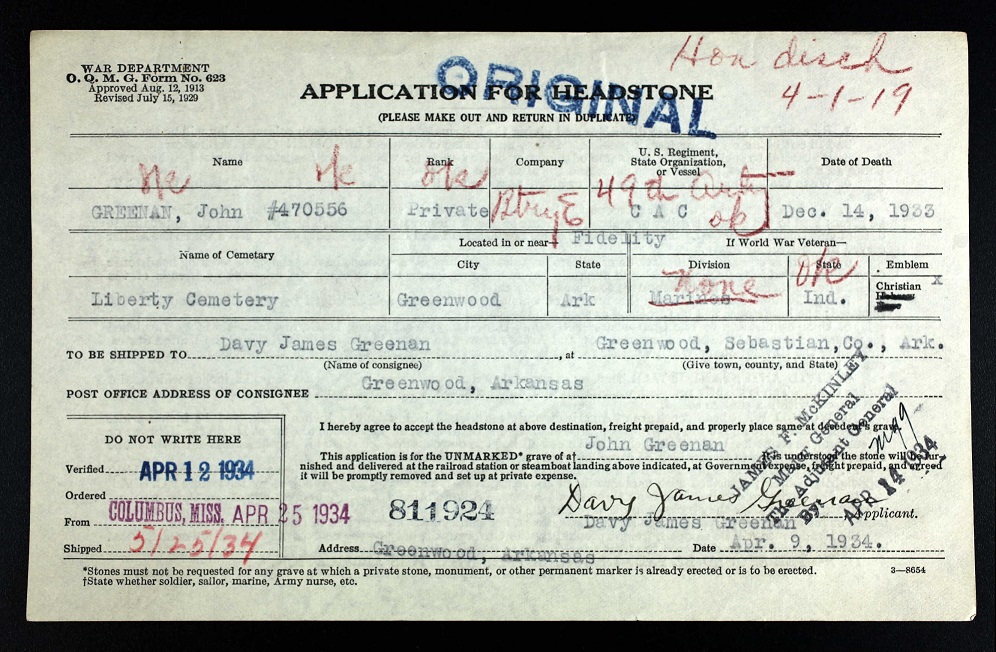 WAR DEPARTMENT
O. Q. M. G. Form No. 623
Approved Aug. 12, 1913
Revised July 15, 1929
ORIGINAL
Hon disch
4-1-19
APPLICATION FOR HEADSTONE
(PLEASE MAKE OUT AND RETURN IN DUPLICATE)
Name
Rank
Company
U. S. Regiment,
State Organization,
or Vessel
Date of Death
ok ok ok Btry E 49th Arty ok
GREENAN, John #470556
Private
C A C
Dec. 14, 1933
Name of Cemetary
Located in or near— Fidelity
If World War Veteran—
City
State
Division
State
Emblem
none
ok
Christian x
Hebrew
Liberty Cemetery
Greenwood
Ark
Marines
Ind.
TO BE SHIPPED TO Davy James Greenan, at Greenwood, Sebastian,Co., Ark.
(Name of consignee) (Give town, county, and State)
POST OFFICE ADDRESS OF CONSIGNEE Greenwood, Arkansas
DO NOT WRITE HERE
Verified APR 12 1934
Ordered
From COLUMBUS, MISS. APR 25 1934
Shipped 5/25/34
I hereby agree to accept the headstone at above destination, freight prepaid, and properly place same at decedent's grave.
This application is for the UNMARKED* grave of a† John Greenan It is understood the stone will be fur-
nished and delivered at the railroad station or steamboat landing above indicated, at Government expense, freight prepaid, and agreed
it will be promptly removed and set up at private expense.
JAMES F. McKINLEY
Major General
The Adjutant General
By
APR 14 1934
811924
Davy James Greenan
Davy James Greenan Applicant.
Address Greenwood, Arkansas
Date Apr. 9, 1934.
*Stones must not be requested for any grave at which a private stone, monument, or other permanent marker is already erected or is to be erected.
†State whether soldier, sailor, marine, Army nurse, etc.
3—8654